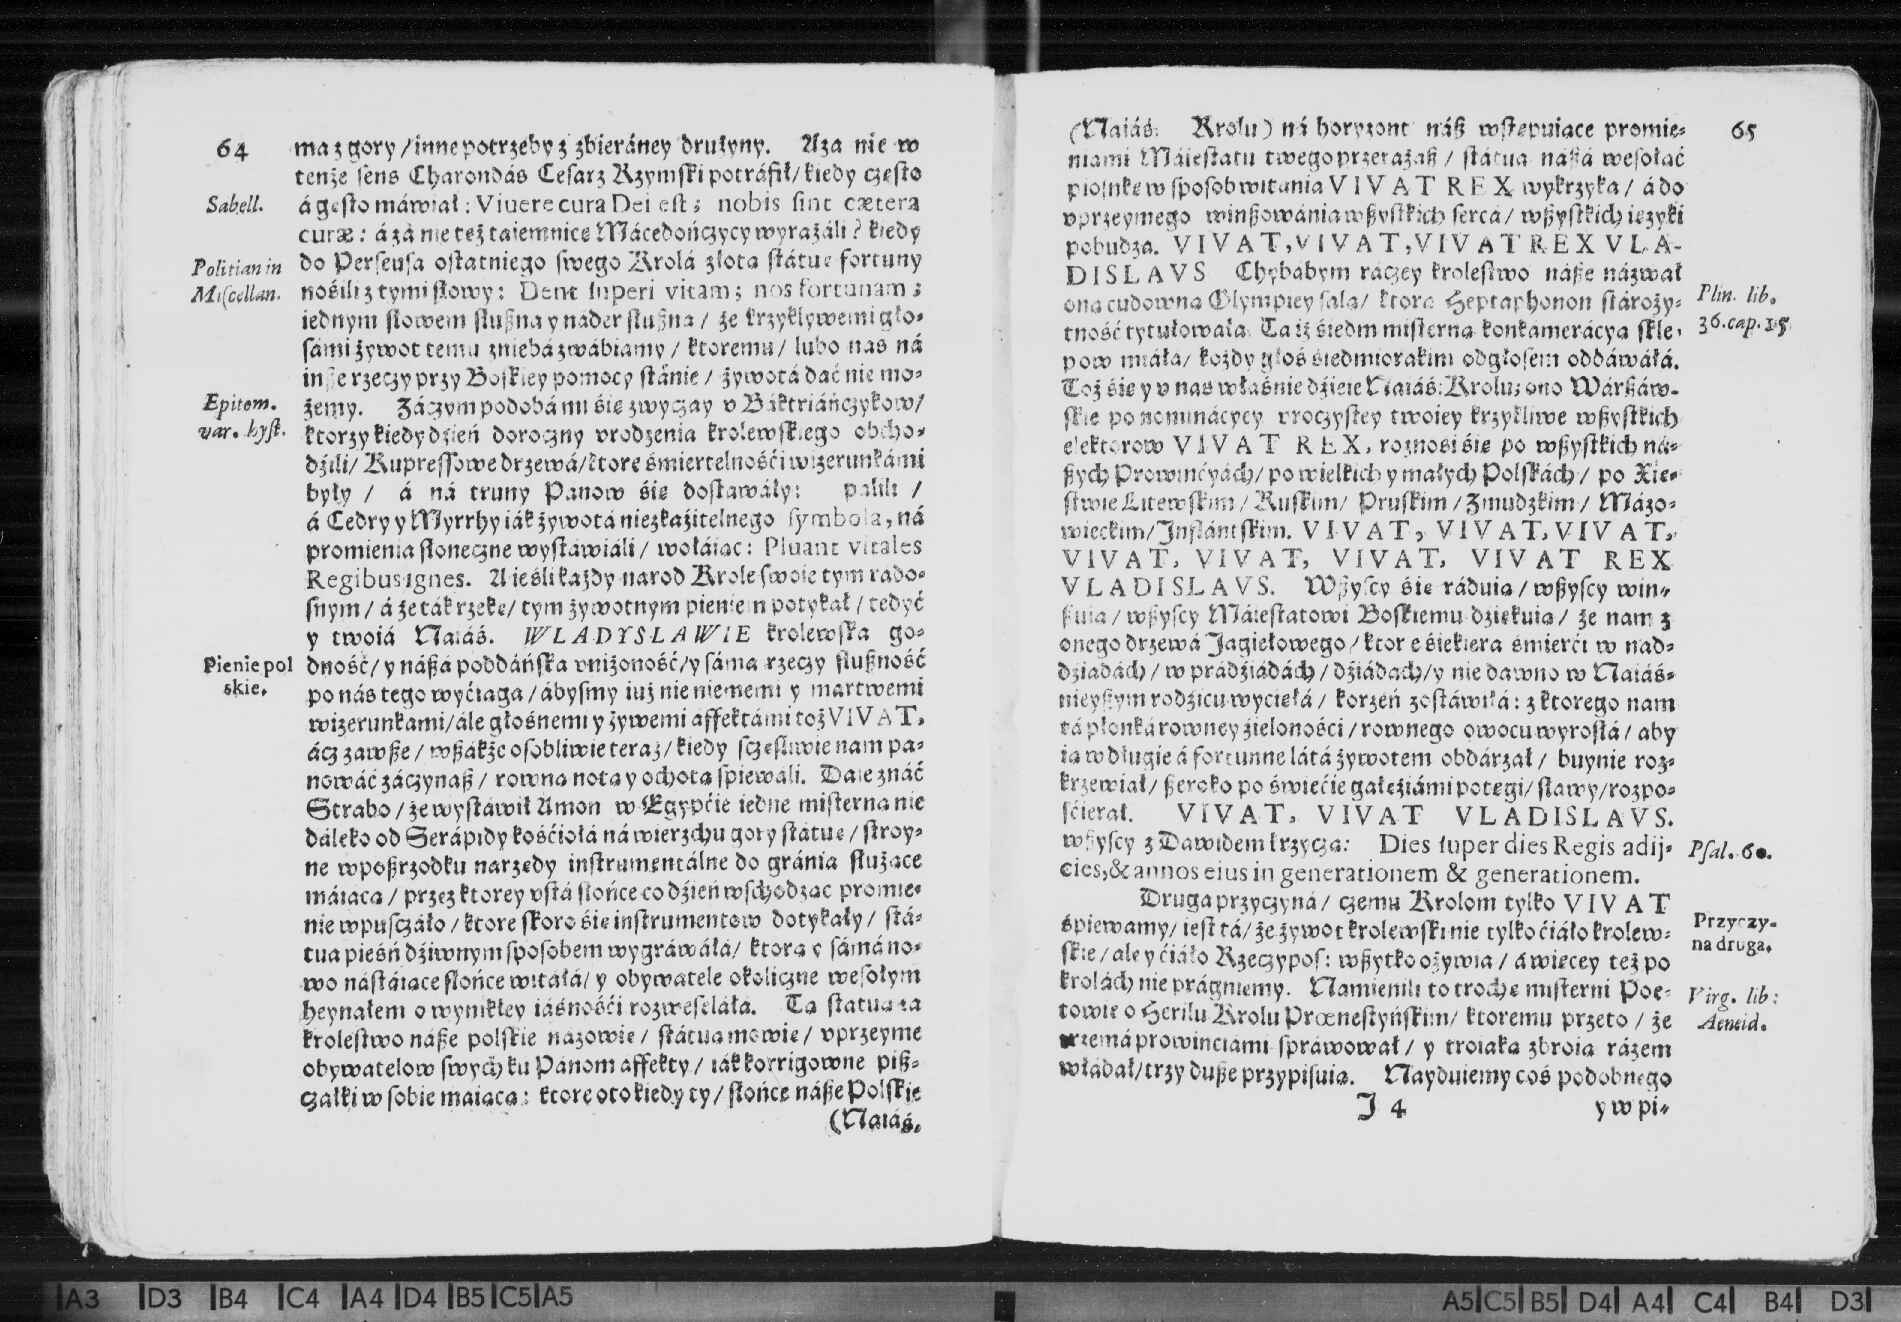 64
ma z gory / inne potrzeby z zbieráney drużyny. Aza nie w
tenże sens Charondás Cesarz Rzymski potráfił / kiedy często
Sabell.
á gęsto máwiał: Viuere cura Dei est; nobis sint cætera
curæ: á zá nie też táiemnice Mácedończycy wyrażáli? kiedy
Politian in
Miscellan.
do Perseusa ostatniego swego Krolá złotą státuę fortuny
nośili z tymi słowy: Dent superi vitam; nos fortunam;
iednym słowem słußna y náder słußna / że krzyklywemi gło-
sámi żywot temu z niebá zwábiamy / ktoremu / lubo nas ná
inße rzeczy przy Boskiey pomocy stánie / żywotá dać nie mo-
Epitom.
var. hyst.
żemy. Záczym podobá mi śię zwyczay v Báktriáńczykow /
ktorzy kiedy dzień doroczny vrodzenia krolewskiego obcho-
dźili / Kupressowe drzewá / ktore śmiertelnośći wizerunkámi
były / á ná truny Panow śię dostawáły: palili /
á Cedry y Myrrhy iák żywotá niezkaźitelnego symbola, ná
promienia słoneczne wystáwiáli / wołáiąc: Pluant vitales
Regibus ignes. A ieśli każdy narod Krole swoie tym rado-
snym / á że ták rzekę / tym żywotnym pieniem potykał / tedyć
y twoiá Naiáś. WLADYSLAWIE krolewska go-
Pienie pol
skie.
dność / y náßá poddáńska vniżoność / y sáma rzeczy słußność
po nás tego wyćiąga / ábysmy iuż nie niememi y martwemi
wizerunkami / ále głośnemi y żywemi affektámi toż VIVAT,
ácz zawße / wßákże osobliwie teraz / kiedy sczęśliwie nam pa-
nowáć záczynaß / rowna nota y ochota śpiewali. Dáie znáć
Strabo / że wystáwił Amon w Egypćie iednę misterna nie
dáleko od Serápidy kośćiołá ná wierzchu gory státuę / stroy-
ne wpoßrzodku narzędy instrumentálne do gránia służące
máiącą / przez ktorey vstá słońce co dźień wschodząc promie-
nie wpusczáło / ktore skoro śię instrumentow dotykały / stá-
tua pieśń dźiwnym sposobem wygráwáłá / ktorą y sámá no-
wo nástáiące słońce witáłá / y obywatele okoliczne wesołym
heynałem o wynikłey iásnośći rozweseláłá. Tą statuą ia
krolestwo náße polskie nazowię / státuą mowię / vprzeyme
obywatelow swych ku Pánom affekty / iák korrigowne piß-
czałki w sobie maiącą: ktore oto kiedy ty / słońce náße Polskie
(Naiáś.
65
(Naiáś: Krolu) ná horyzont náß wstępuiące promie-
niami Máiestatu twego przerażaß / státua náßá wesołąć
piosnkę w sposob witania VIVAT REX wykrzyka / á do
vprzeymego winßowánia wßystkich serca / wßystkich ięzyki
pobudza. VIVAT, VIVAT, VIVAT REX VLA-
DISLAVS Chybábym ráczey krolestwo náße názwał
Plin. lib.
36. cap. 15
oną cudowną Olympiey salą / ktorą Heptaphonon stároży-
tność tytułowała. Ta iż śiedm misterną konkamerácyą skle-
pow miáła / kożdy głos śiedmiorakim odgłosem oddáwáłá.
Toż śię y v nas właśnie dźieie Naiáś: Krolu; ono Wárßáw-
skie po nominácyey vroczystey twoiey krzykliwe wßystkich
elektorow VIVAT REX, roznosi śię po wßystkich ná-
ßych Prowincyách / po wielkich y małych Polskách / po Xię-
stwie Litewskim / Ruskim / Pruskim / Zmudzkim / Mázo-
wieckim / Inflántskim. VIVAT, VIVAT, VIVAT,
VIVAT, VIVAT, VIVAT, VIVAT REX
VLADISLAVS. Wßyscy śię ráduią / wßyscy win-
ßuią / wßyscy Máiestatowi Boskiemu dźiękuią / że nam z
onego drzewá Jagiełowego / ktore śiekiera śmierći w nad-
dźiadách / w prádźiádách / dźiádách / y nie dawno w Naiáś-
nieyßym rodźicu wyciełá / korzeń zostáwiłá: z ktorego nam
tá płonká rowney źieloności / rownego owocu wyrosłá / aby
ią w długie á fortunne látá żywotem obdárzał / buynie roz-
krzewiał / ßeroko po świećie gałęźiámi potęgi / sławy / rozpo-
śćierał. VIVAT, VIVAT VLADISLAVS.
Psal. 60.
wßyscy z Dawidem krzyczą: Dies super dies Regis adij-
cies, & annos eius in generationem & generationem.
Przyczy-
na druga.
Druga przyczyná / czemu Krolom tylko VIVAT
śpiewamy / iest tá / że żywot krolewski nie tylko ćiáło krolew-
skie / ale y ćiáło Rzeczypos: wßytko ożywia / á więcey też po
krolách nie prágniemy. Námienili to trochę misterni Poe-
Virg. lib:
Aeneid.
towie o Herilu Krolu Prœnestyńskim / ktoremu przeto / że
trzemá prowinciami spráwował / y troiaką zbroią rázem
władał / trzy duße przypisuią. Nayduiemy coś podobnego
J 4
y w pi-
A3 D3 B4 C4 A4 D4 B5 C5 A5
A5 C5 B5 D4 A4 C4 B4 D3